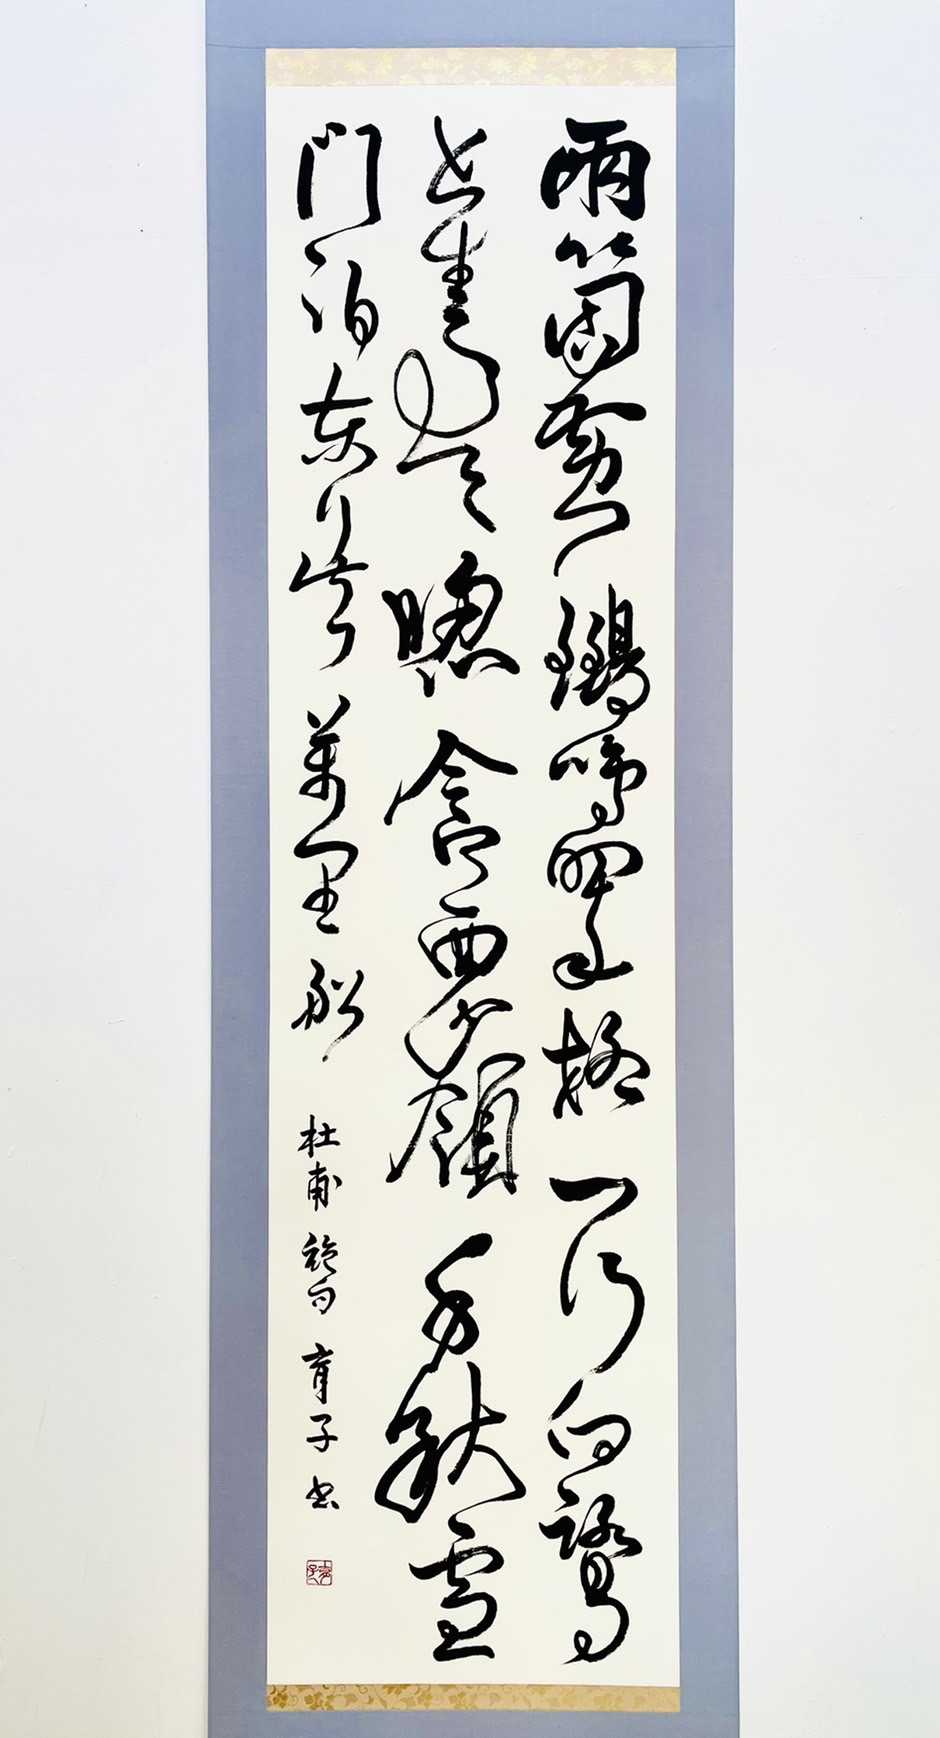 兩箇黃鸝鳴翠柳一行白鷺
上青天牕含西嶺千秋雪
門泊東吳萬里船 杜甫 絶句 育子書